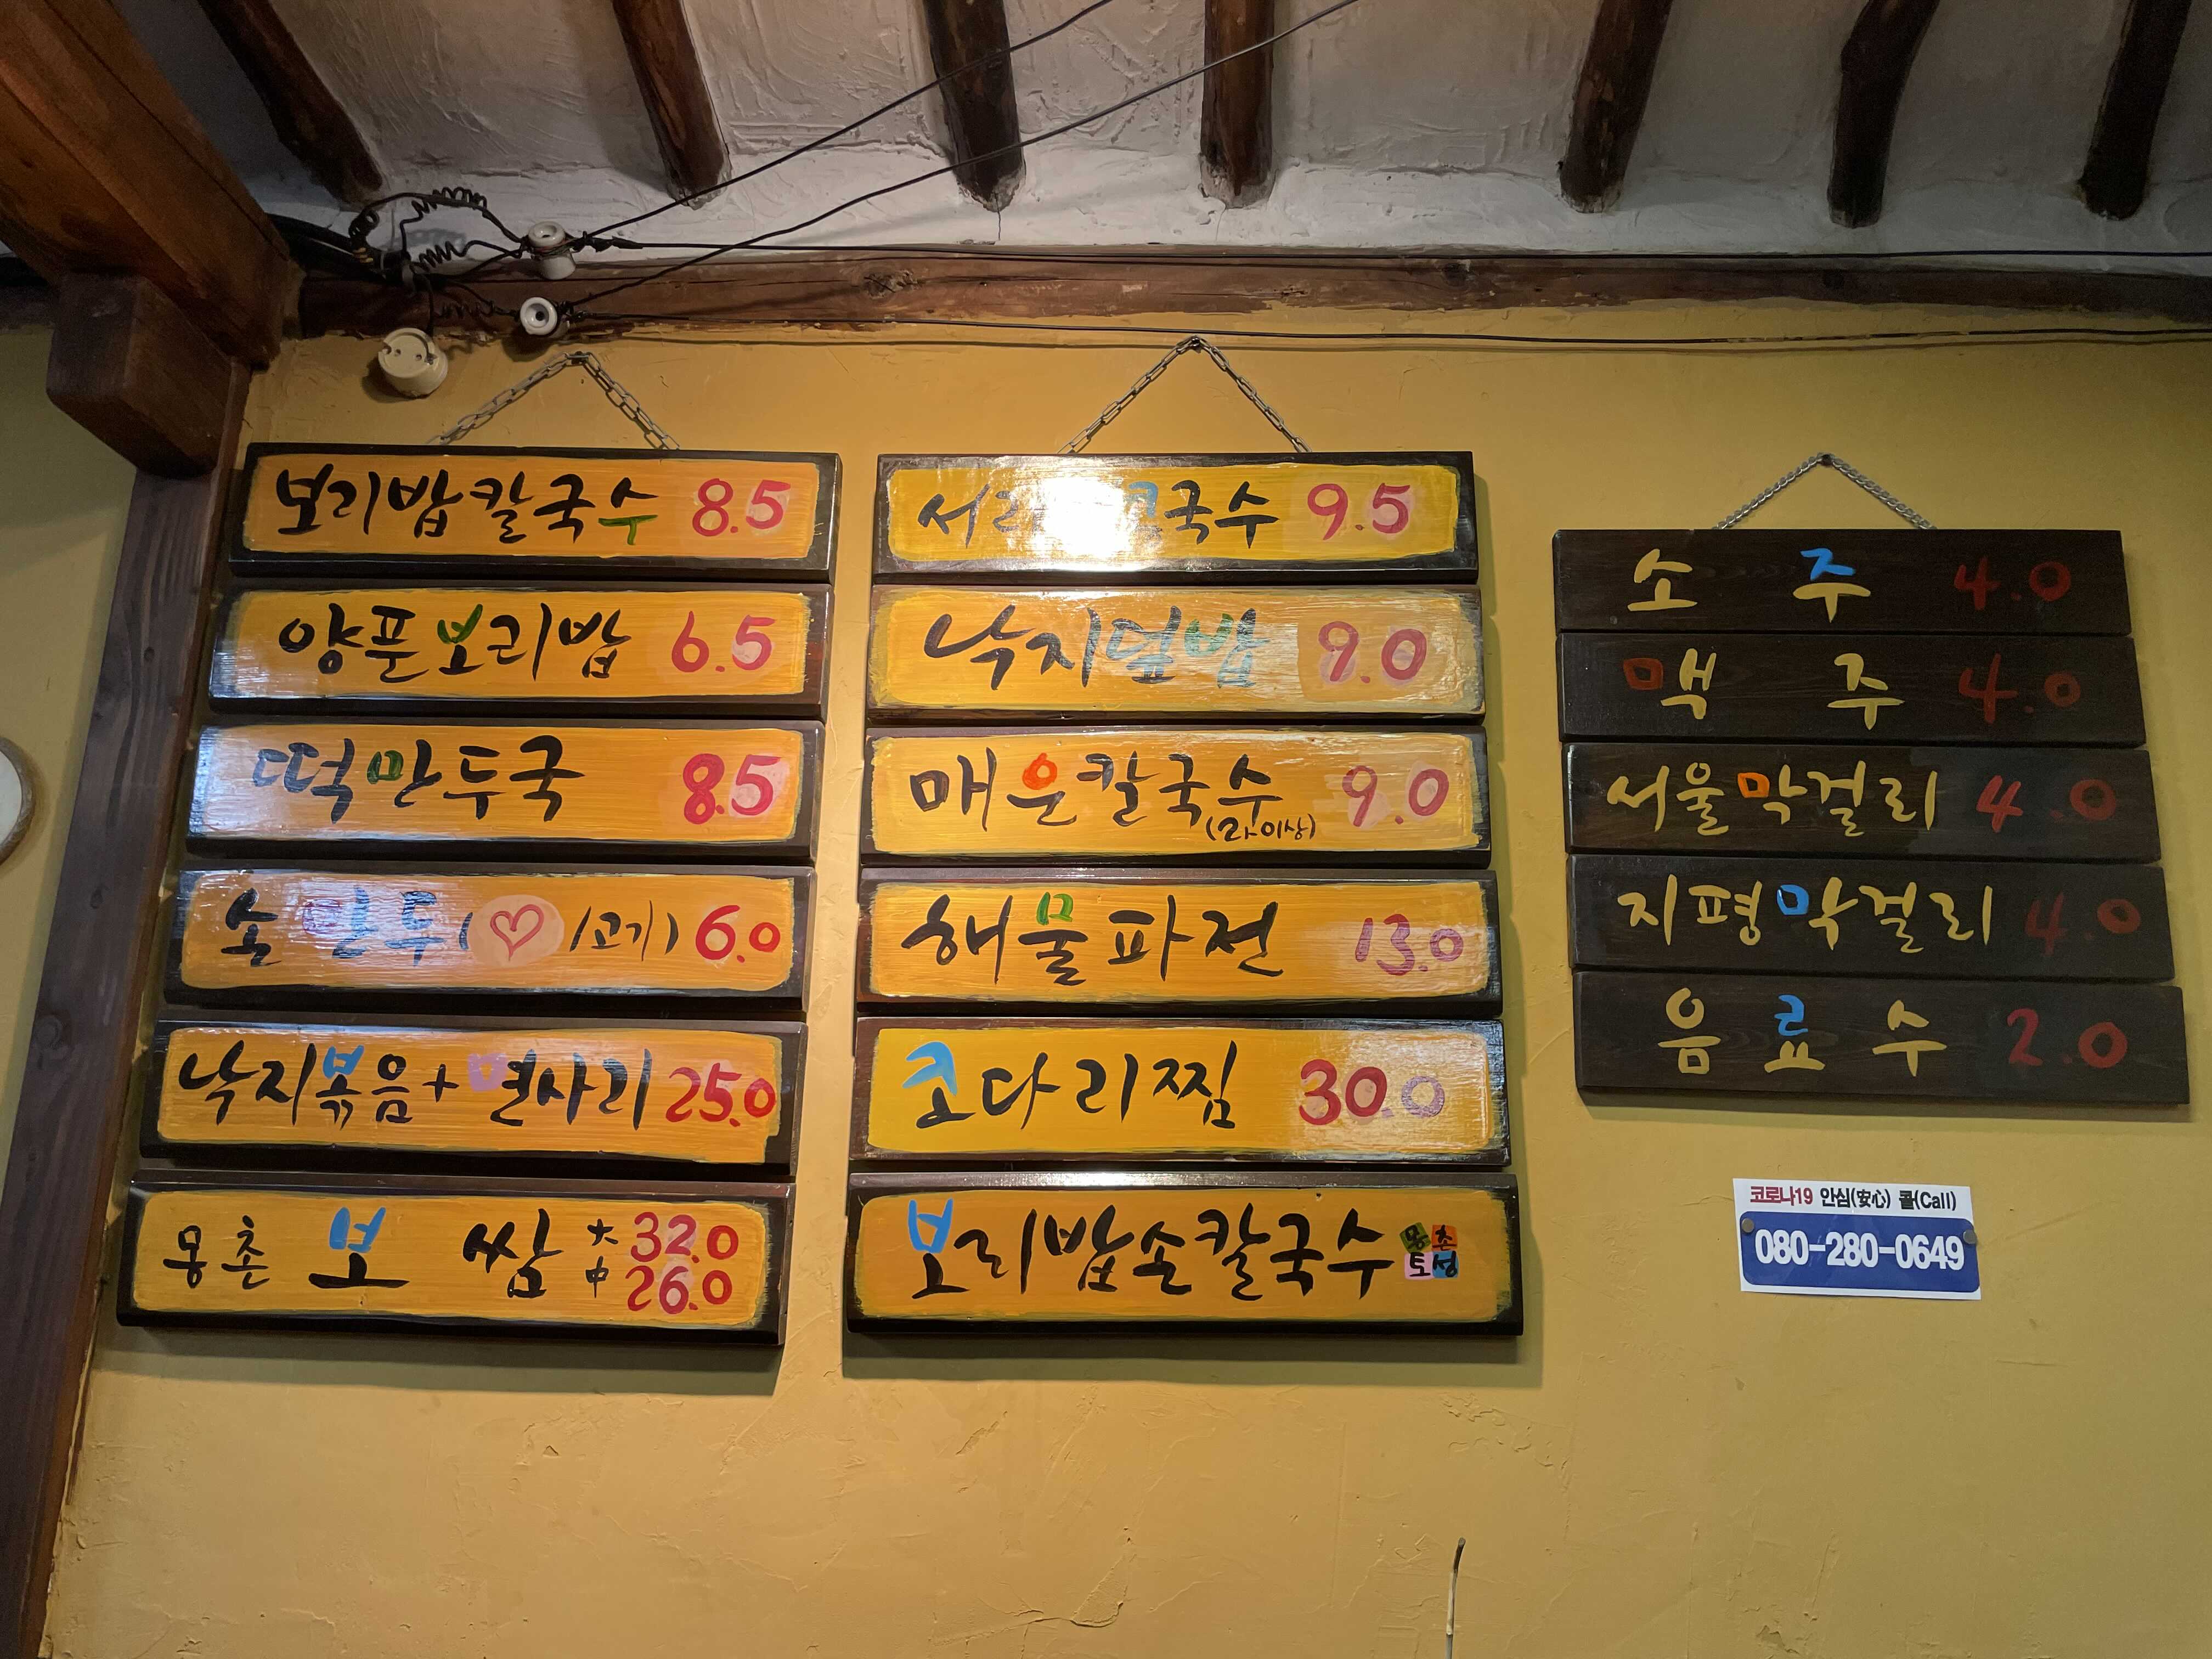 보리밥칼국수 8.5
양푼보리밥 6.5
떡만두국 8.5
손만두(♡/고기) 6.0
낙지볶음+면사리 25.0
몽촌 보쌈 大 32.0
中 26.0
서리 콩국수 9.5
낙지덮밥 9.0
매운칼국수 9.0
(2人이상)
해물파전 13.0
코다리찜 30.0
보리밥손칼국수 몽촌
토성
소 주 4.0
맥 주 4.0
서울막걸리 4.0
지평막걸리 4.0
음료수 2.0
코로나19 안심(安心) 콜(Call)
080-280-0649